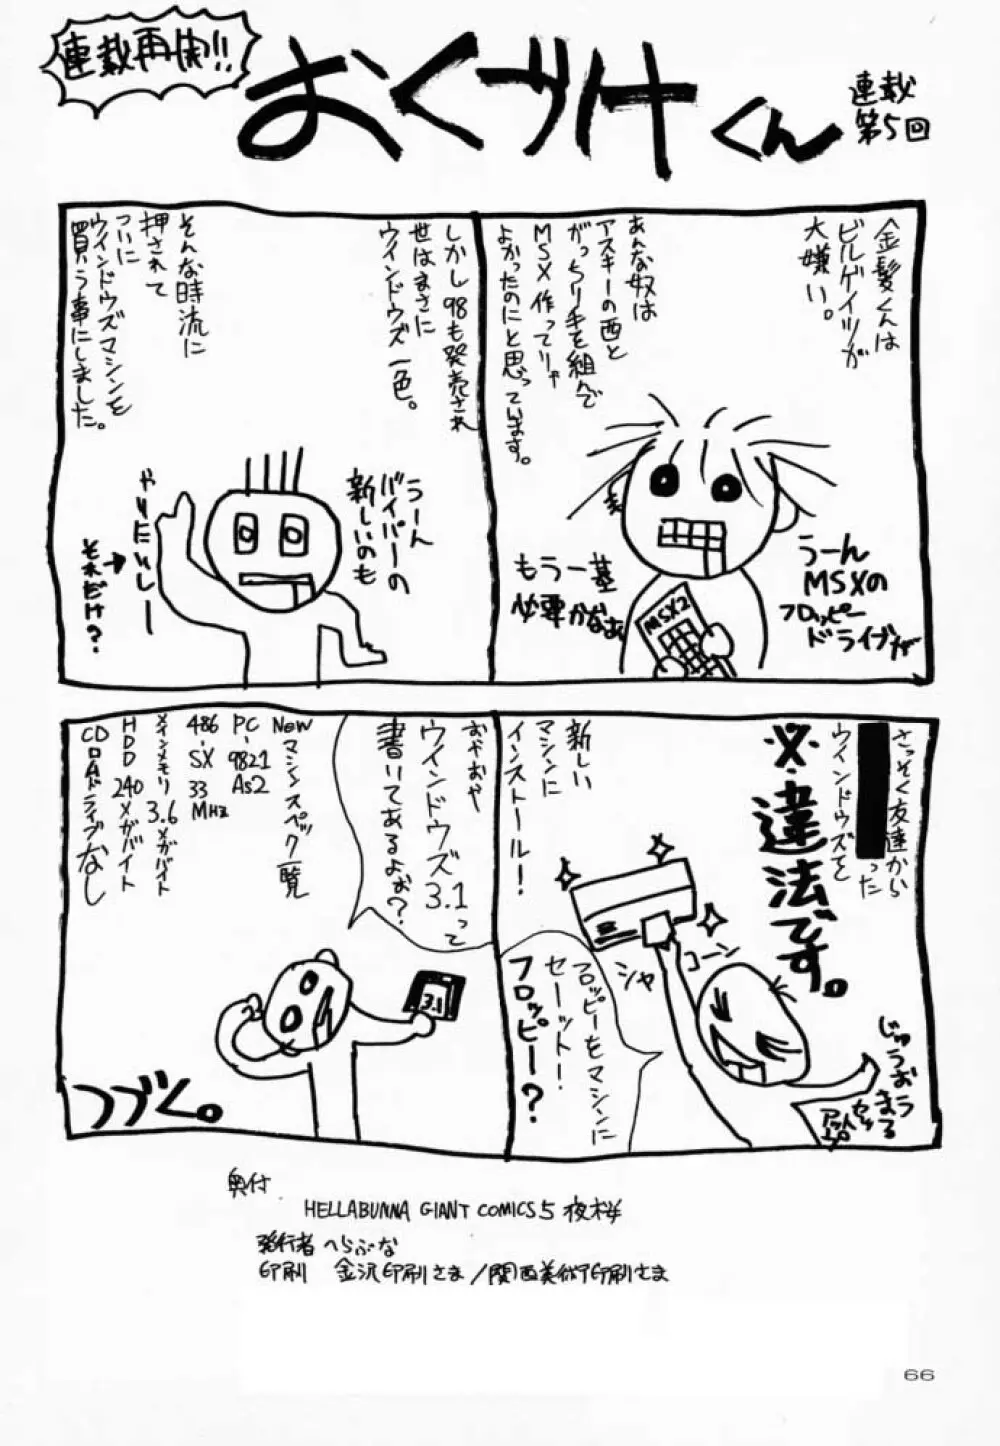 連載再開!!
おくづけくん
連載
第5回
金髪くんは
ビルゲイツが
大嫌い。
あんな奴は
アスキーの西と
がっちり手を組んで
MSX作ってりゃ
よかったのにと思っています。
うーん
MSXの
フロッピー
ドライブが
もう一基
必要かなぁ
MSX2
しかし98も発売され
世はまさに
ウインドウズ一色。
そんな時流に
押されて
ついに
ウインドウズマシンを
買う事にしました。
うーん
バイパーの
新しいのも
やりたいしー
それだけ?
さっそく友達から
った
ウインドウズを
※違法です。
新しい
マシンに
インストール!
シャ
コーン
フロッピーをマシンに
セーット!
フロッピー?
じゅうおう
まる
アットエプ
おやおや
ウインドウズ3.1って
書いてあるよぉ?
3.1
Newマシンスペック一覧
PC-9821As2
486-SX 33MHz
メインメモリ 3.6メガバイト
HDD 240メガバイト
CDロムドライブなし
つづく。
奥付
HELLABUNNA GIANT COMICS 5 夜桜
発行者 へらぶな
印刷 金沢印刷さま/関西美術印刷さま
66